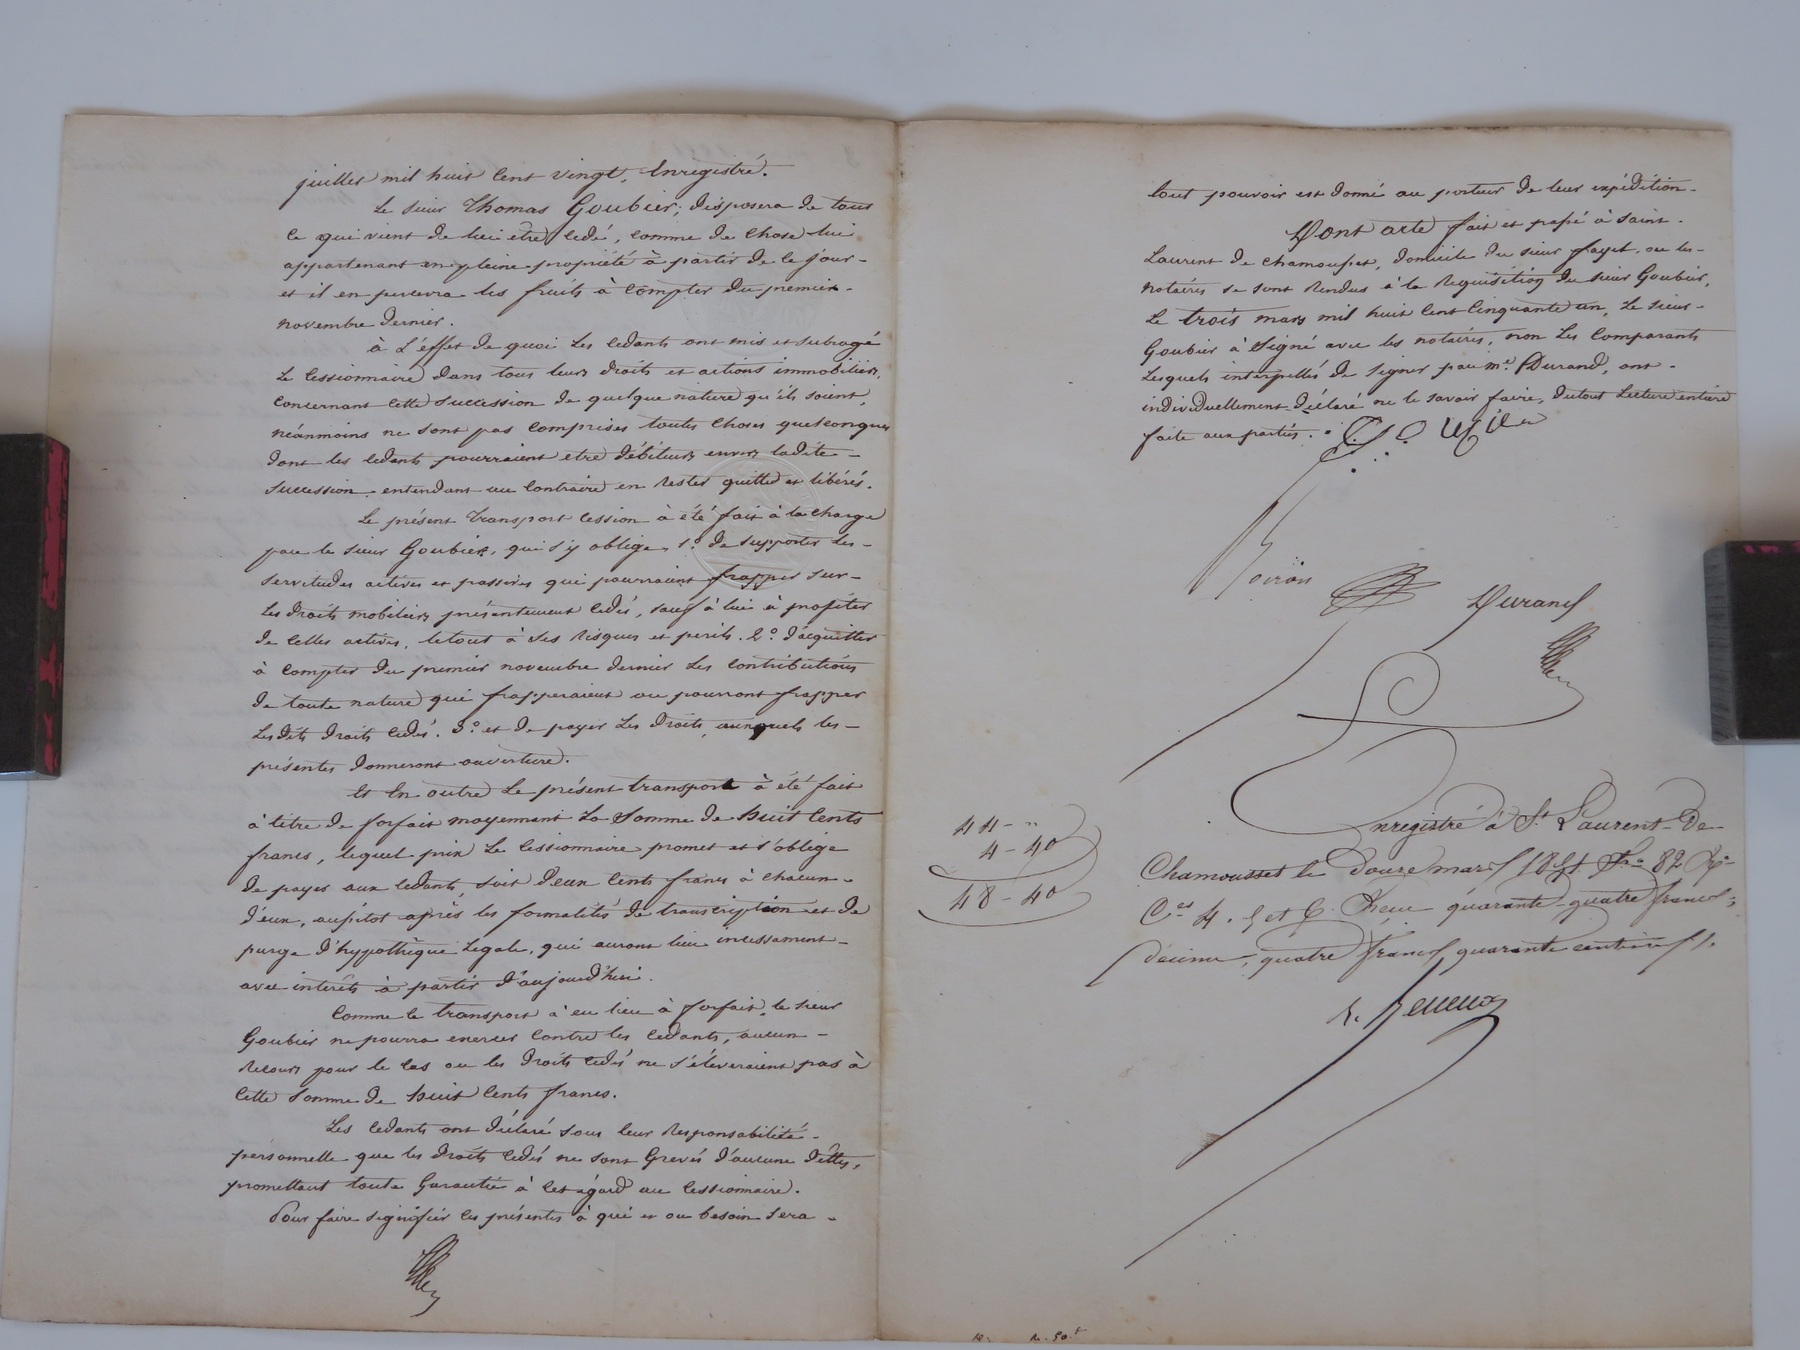 juillet mil huit cent vingt, Enregistré.
Le sieur Thomas Goubier; disposera de tout
ce qui vient de lui etre cédé, comme de chose lui
appartenant en pleine propriété à partir de ce jour-
et il en percevra les fruits à compter du premier-
novembre dernier.
à L'éffet de quoi Les cedants ont mis et subrogé
Le Cessionnaire dans tous leurs droits et actions immobiliers,
Concernant cette succession de quelque nature qu'ils soient,
néanmoins ne sont pas comprises toutes choses quelconques
dont les cedants pourraient etre débiteurs envers ladite-
succession entendant au contraire en rester quittes et libérés.
Le présent transport cession à été fait à la charge
par le sieur Goubier, qui s'y oblige, 1.° de supporter les-
servitudes actives et passives qui pourraient frapper sur-
Les droits mobiliers présentement cédés, sauf à lui à profiter
de celles actives, le tout à ses risques et perils. 2.° d'acquitter
à compter du premier novembre dernier Les contributions
de toute nature qui frapperaient ou pourront frapper
Lesdits droits cédés. 3.° et de payer Les droits auxquels les-
présentes donneront ouverture.
Et En outre Le présent transport à été fait
à titre de forfait moyennant La Somme de huit Cents
francs, lequel prix Le Cessionnaire promet et s'oblige
de payer aux cedants, soit deux Cents francs à chacun-
d'eux, aussitot après les formalités de transcription et de
purge d'hypothèque Legale, qui auront lieu incessament-
avec intérêts à partir d'aujourd'hui.
Comme le transport à eu lieu à forfait, le sieur
Goubier ne pourra exercer contre les cedants, aucun-
Recours pour le cas ou les droits cédés ne s'éleveraient pas à
Cette Somme de huit Cents francs.
Les cedants ont déclaré sous leur responsabilité-
personnelle que les droits cédés ne sont Grevés d'aucune dettes,
promettant toute Garantie à cet égard au cessionnaire.
Pour faire signifier ces présentes à qui et ou besoin sera-
tout pouvoir est donné au porteur de leur expédition-
Dont acte fait et passé à Saint-
Laurent de chamousset, domicile du sieur fayet, ou les-
notaires se sont rendus à la Requisition du sieur Goubier,
Le trois mars mil huit cent Cinquante un, Le sieur-
Goubier à Signé avec les notaires, non Les Comparants
Lesquels interpellés de signer par me. Durand, ont-
individuellement déclaré ne le savoir faire, du tout Lecture entière
faite aux parties.
Durand
44 - "
4 - 40
48 - 40
Enregistré à St Laurent-De-
Chamousset le Douze mars 1851 fo 82 Ro
Ces 4. 5 et 6. Reçu quarante-quatre francs,
décime, quatre francs quarante centimes.